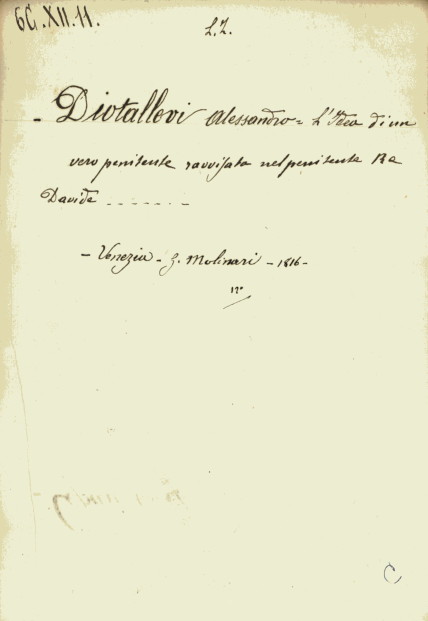 6C.XII.11.
L.Z.
- Diotallevi Alessandro = L'Idea di un
vero penitente ravvisata nel penitente Re
Davide - - - - - -
- Venezia - G. Molinari - 1816 -
12°
C